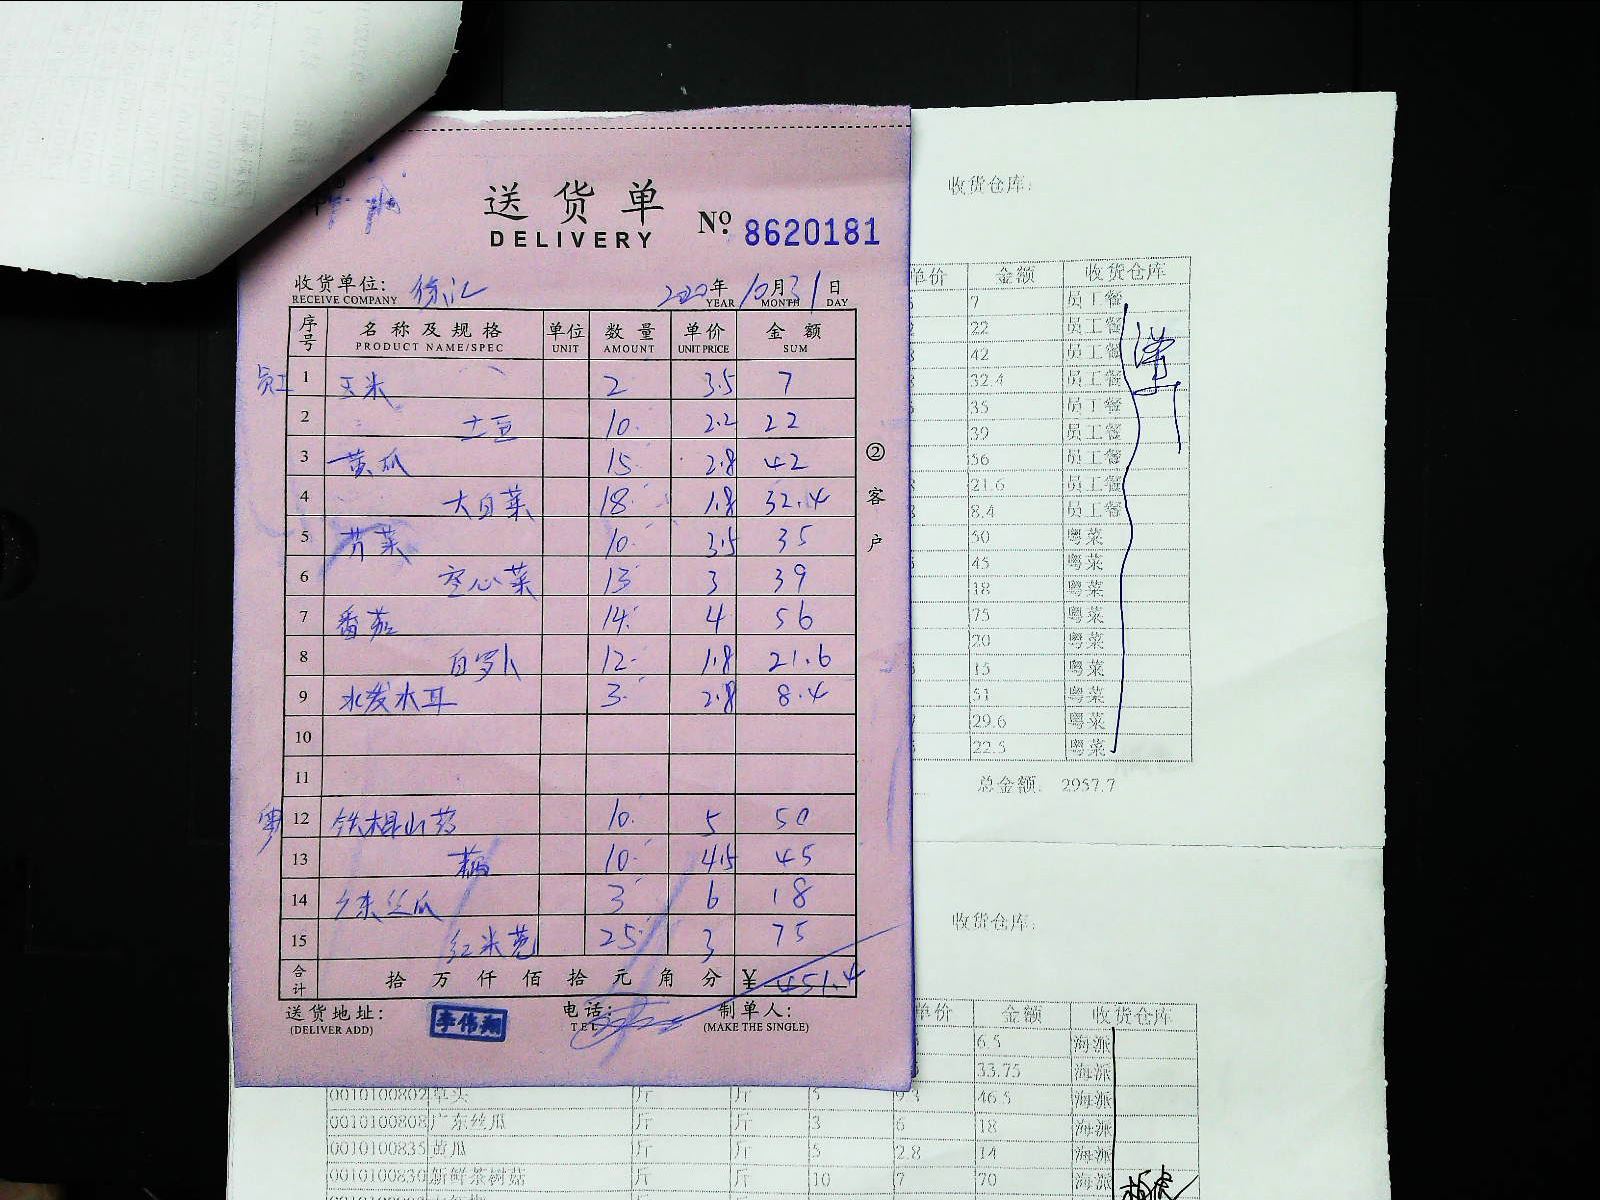 送货单
DELIVERY
No: 8620181
收货单位: 徐汇 2020年10月31日
RECEIVE COMPANY YEAR MONTH DAY
序号 名称及规格 单位 数量 单价 金额
PRODUCT NAME/SPEC UNIT AMOUNT UNIT PRICE SUM
员工 1 玉米 2 3.5 7
2 土豆 10 2.2 22
3 黄瓜 15 2.8 42
4 大白菜 18 1.8 32.4
5 芹菜 10 3.5 35
6 空心菜 13 3 39
7 番茄 14 4 56
8 白罗卜 12 1.8 21.6
9 水发木耳 3 2.8 8.4
10
11
粤 12 铁棍山药 10 5 50
13 藕 10 4.5 45
14 广东丝瓜 3 6 18
15 红米苋 25 3 75
合计 拾万仟佰拾元角分 ¥ 451.4
送货地址: 李伟翔 电话: 制单人:
(DELIVER ADD) TEL (MAKE THE SINGLE)
②客户
收货仓库:
单价 金额 收货仓库
7 员工餐
22 员工餐
42 员工餐
32.4 员工餐
35 员工餐
39 员工餐
56 员工餐
21.6 员工餐
8.4 员工餐
50 粤菜
45 粤菜
18 粤菜
75 粤菜
20 粤菜
15 粤菜
51 粤菜
29.6 粤菜
22.5 粤菜
总金额: 2957.7
收货仓库:
单价 金额 收货仓库
6.5 海派
33.75 海派
0010100802 草头 斤 斤 5 9.3 46.5 海派
0010100808 广东丝瓜 斤 斤 3 6 18 海派
0010100835 黄瓜 斤 斤 5 2.8 14 海派
0010100830 新鲜茶树菇 斤 斤 10 7 70 海派